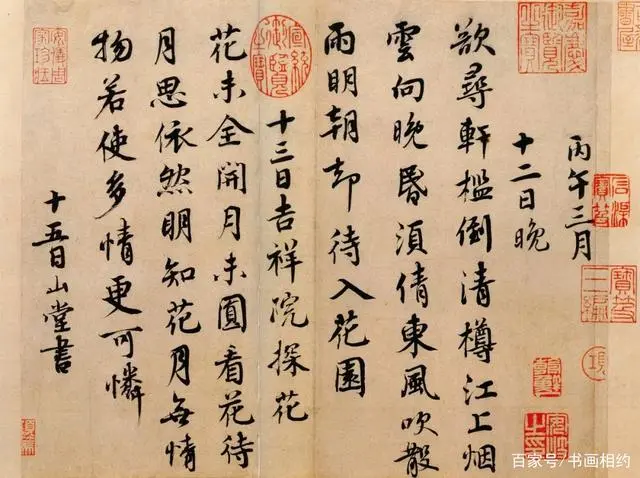 丙午三月
十二日晚
欲尋軒檻倒清樽江上烟
雲向晚昏須倩東風吹散
雨明朝却待入花園
十三日吉祥院探花
花未全開月未圓看花待
月思依然明知花月無情
物若使多情更可憐
十五日山堂書
百家号/书画相约